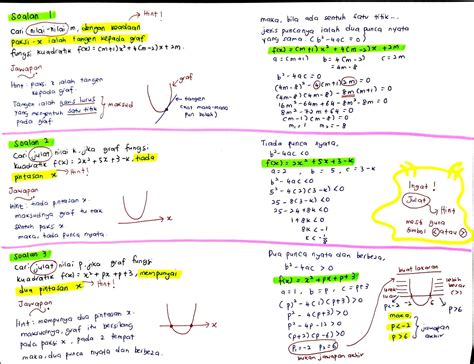 Soalan 1
Hint!
Cari nilai-nilai m, dengan keadaan
paksi-x ialah tangen kepada graf
fungsi kuadratik f(x) = (m+1)x² + 4(m-2)x + 2m.
Jawapan
Hint: paksi x ialah tangen
kepada graf
Tangen ialah garis lurus
yang menyentuh satu titik
maksud
graf
x
tangen
(kat mana-mana
pun boleh)
maka, bila ada sentuh satu titik...
jenis puncanya ialah dua punca nyata
yang sama. (b²-4ac = 0)
f(x) = (m+1)x² + 4(m-2)x + 2m
a = (m+1) b = 4(m-2) c = 2m
= 4m-8
b² - 4ac = 0
(4m-8)² - 4(m+1)(2m) = 0
(4m-8)(4m-8) - 8m(m+1) = 0
16m² - 64m + 64 - 8m² - 8m = 0
8m² - 72m + 64 = 0
(m-1)(m-8) = 0
m₁ = 1 m₂ = 8
Soalan 2
Hint!
Cari julat nilai k, jika graf fungsi
kuadratik f(x) = 2x² + 5x + 3 - k, tiada
pintasan x
Hint!
Jawapan
Hint: tiada pintasan x.
maksudnya graf tu tak
sentuh paksi x
maka, tiada punca nyata.
x
Tiada punca nyata,
b² - 4ac < 0
f(x) = 2x² + 5x + 3 - k
a = 2, b = 5, c = 3-k
b² - 4ac < 0
5² - 4(2)(3-k) < 0
25 - 8(3-k) < 0
25 - 24 + 8k < 0
1 + 8k < 0
8k < -1
k < -1/8
Ingat!
Julat
Hint
mesti guna
simbol < atau >
Soalan 3
Hint!
Cari julat nilai p, jika graf fungsi
kuadratik f(x) = x² + px + p + 3, mempunyai
dua pintasan x
Hint!
Jawapan
Hint: mempunyai dua pintasan x.
maksudnya, graf itu bersilang
pada paksi x, pada 2 tempat
maka, dua punca nyata dan berbeza.
x
Dua punca nyata dan berbeza,
b² - 4ac > 0
f(x) = x² + px + p + 3
a = 1, b = p, c = p+3
(p)² - 4(1)(p+3) > 0
p² - 4(p+3) > 0
p² - 4p - 12 > 0
(p+2)(p-6) > 0
p₁ = -2 p₂ = 6
bukan jawapan akhir
buat lakaran
p < -2
-2
6
p > 6
maka,
p < -2
p > 6
jawapan akhir